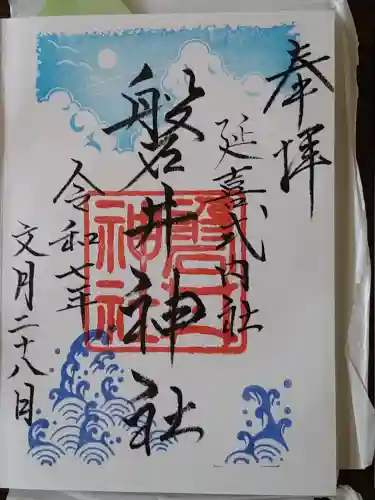 奉拝
延喜式内社
磐井神社
磐井神社
令和七年
文月二十八日